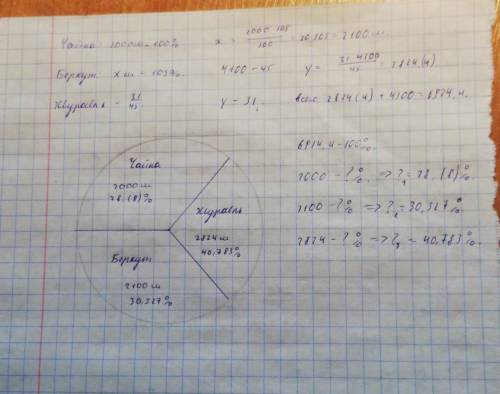 Чайка: 2000м – 100% x = 2000·105/100 = 20·105 = 2100 м.
Беркут x м – 105%. 4100 – 45 y = 31·4100/45 = 2824(4).
Журавль – 31/45. y – 31. всего: 2824(4) + 4100 = 6924,4.
6924,4 – 100%
2000 – ?% => ?₁ = 28,(8)%
2100 – ?% => ?₂ = 30,327%
2824 – ?% => ?₃ = 40,783%
Чайка
2000 м
28,(8)%
Журавль
2824 м
40,783%
Беркут
2100 м
30,327%